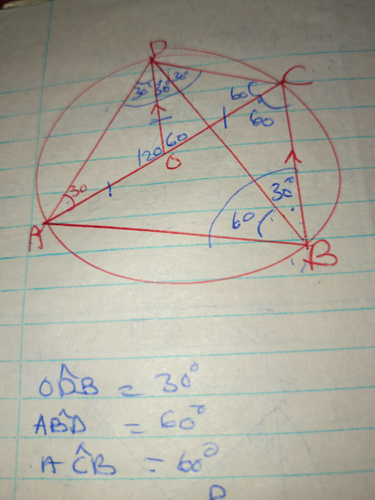 D
30° 30° 30°
C
60
60
120 60
O
30
30°
60
A
B
OD̂B = 30°
AB̂D = 60°
AĈB = 60°
D